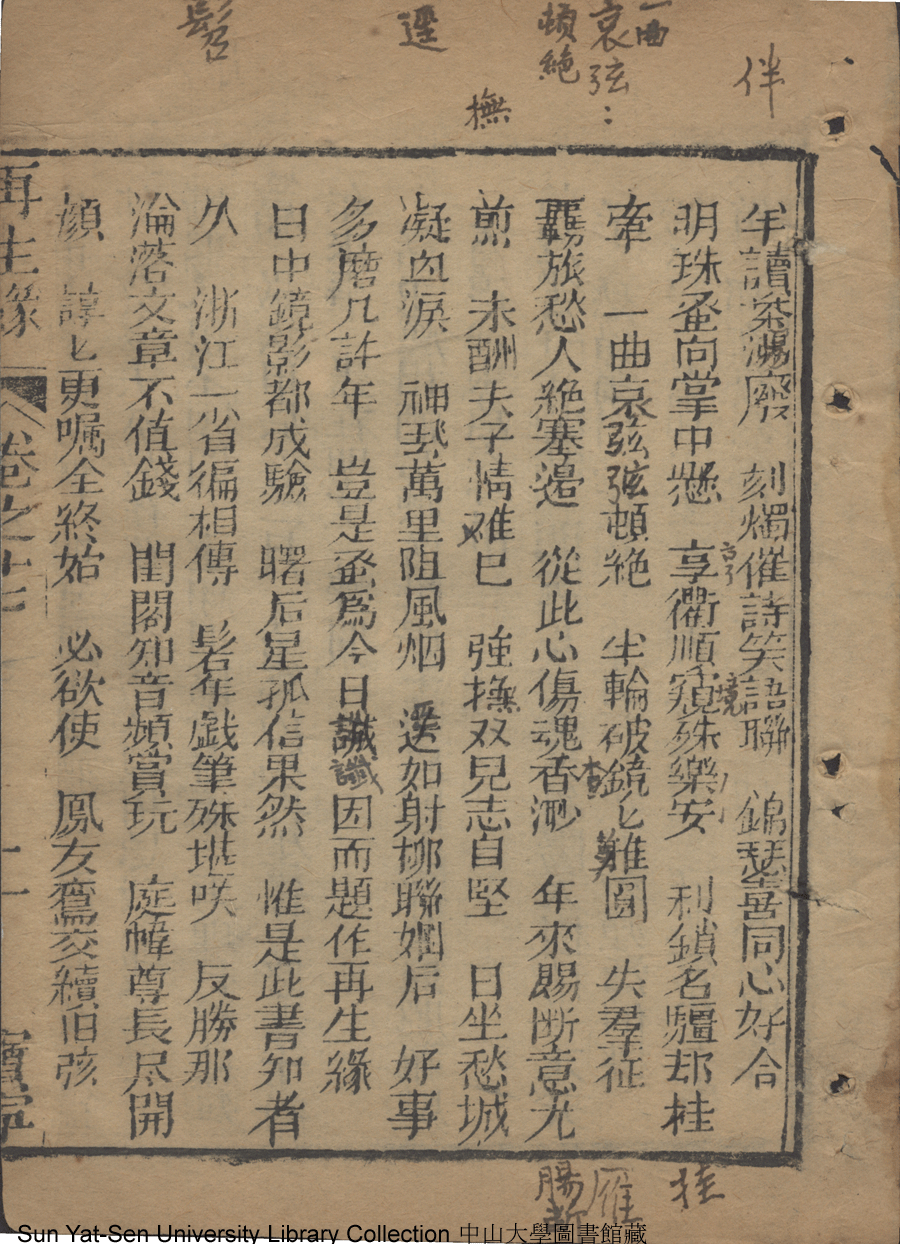 髫
遲
一曲
哀弦：
頓絶
撫
伴
半讀茶湯廢　刻燭催詩笑語聯　錦瑟喜同心好合
明珠蚤向掌中懸　享衢順窺殊樂安　利鎖名韁却桂
牽　一曲哀弦弦頓絶　半輪破鏡匕難圓　失羣征
羈旅愁人絶塞邉　從此心傷魂香渺　年來賜断意尤
煎　未酬夫子情难巳　強撫双兒志自堅　日坐愁城
凝血淚　神𩲸萬里阻風烟　送如射柳聯姻后　好事
多磨几許年　豈是蚤爲今日讖　因而題作再生緣
日中鏡影都成驗　曙后星孤信果然　惟是此書知者
久　浙江一省徧相傳　髫年戯筆殊堪咲　反勝那
淪落文章不值錢　閨閣知音頻賞玩　庭幃尊長尽開
顔　諄匕更嘱全終始　必欲使　鳳友鸞交續旧弦
再生緣　卷之十七　十一　寳寧
亨
境
查
讖
難
挂
雁
腸断
Sun Yat-Sen University Library Collection 中山大學圖書館藏